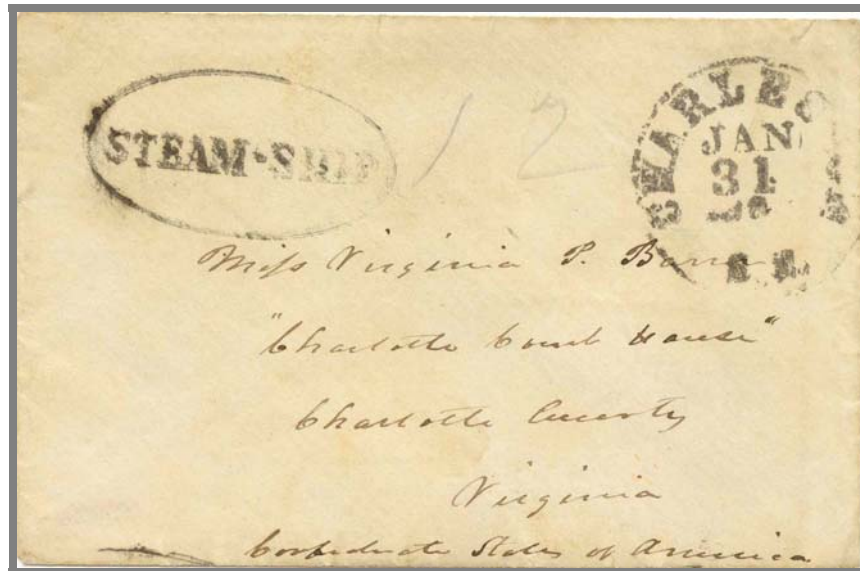 STEAM-SHIP
12
CHARLES
JAN
31
Miss Virginia P.
"Charlotte Court House"
Charlotte County
Virginia
Confederate States of America